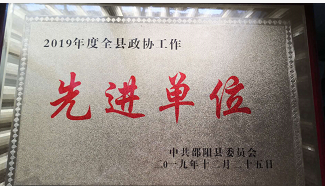 2019年度全县政协工作
先进单位
中共邵阳县委员会
二〇一九年十二月二十五日